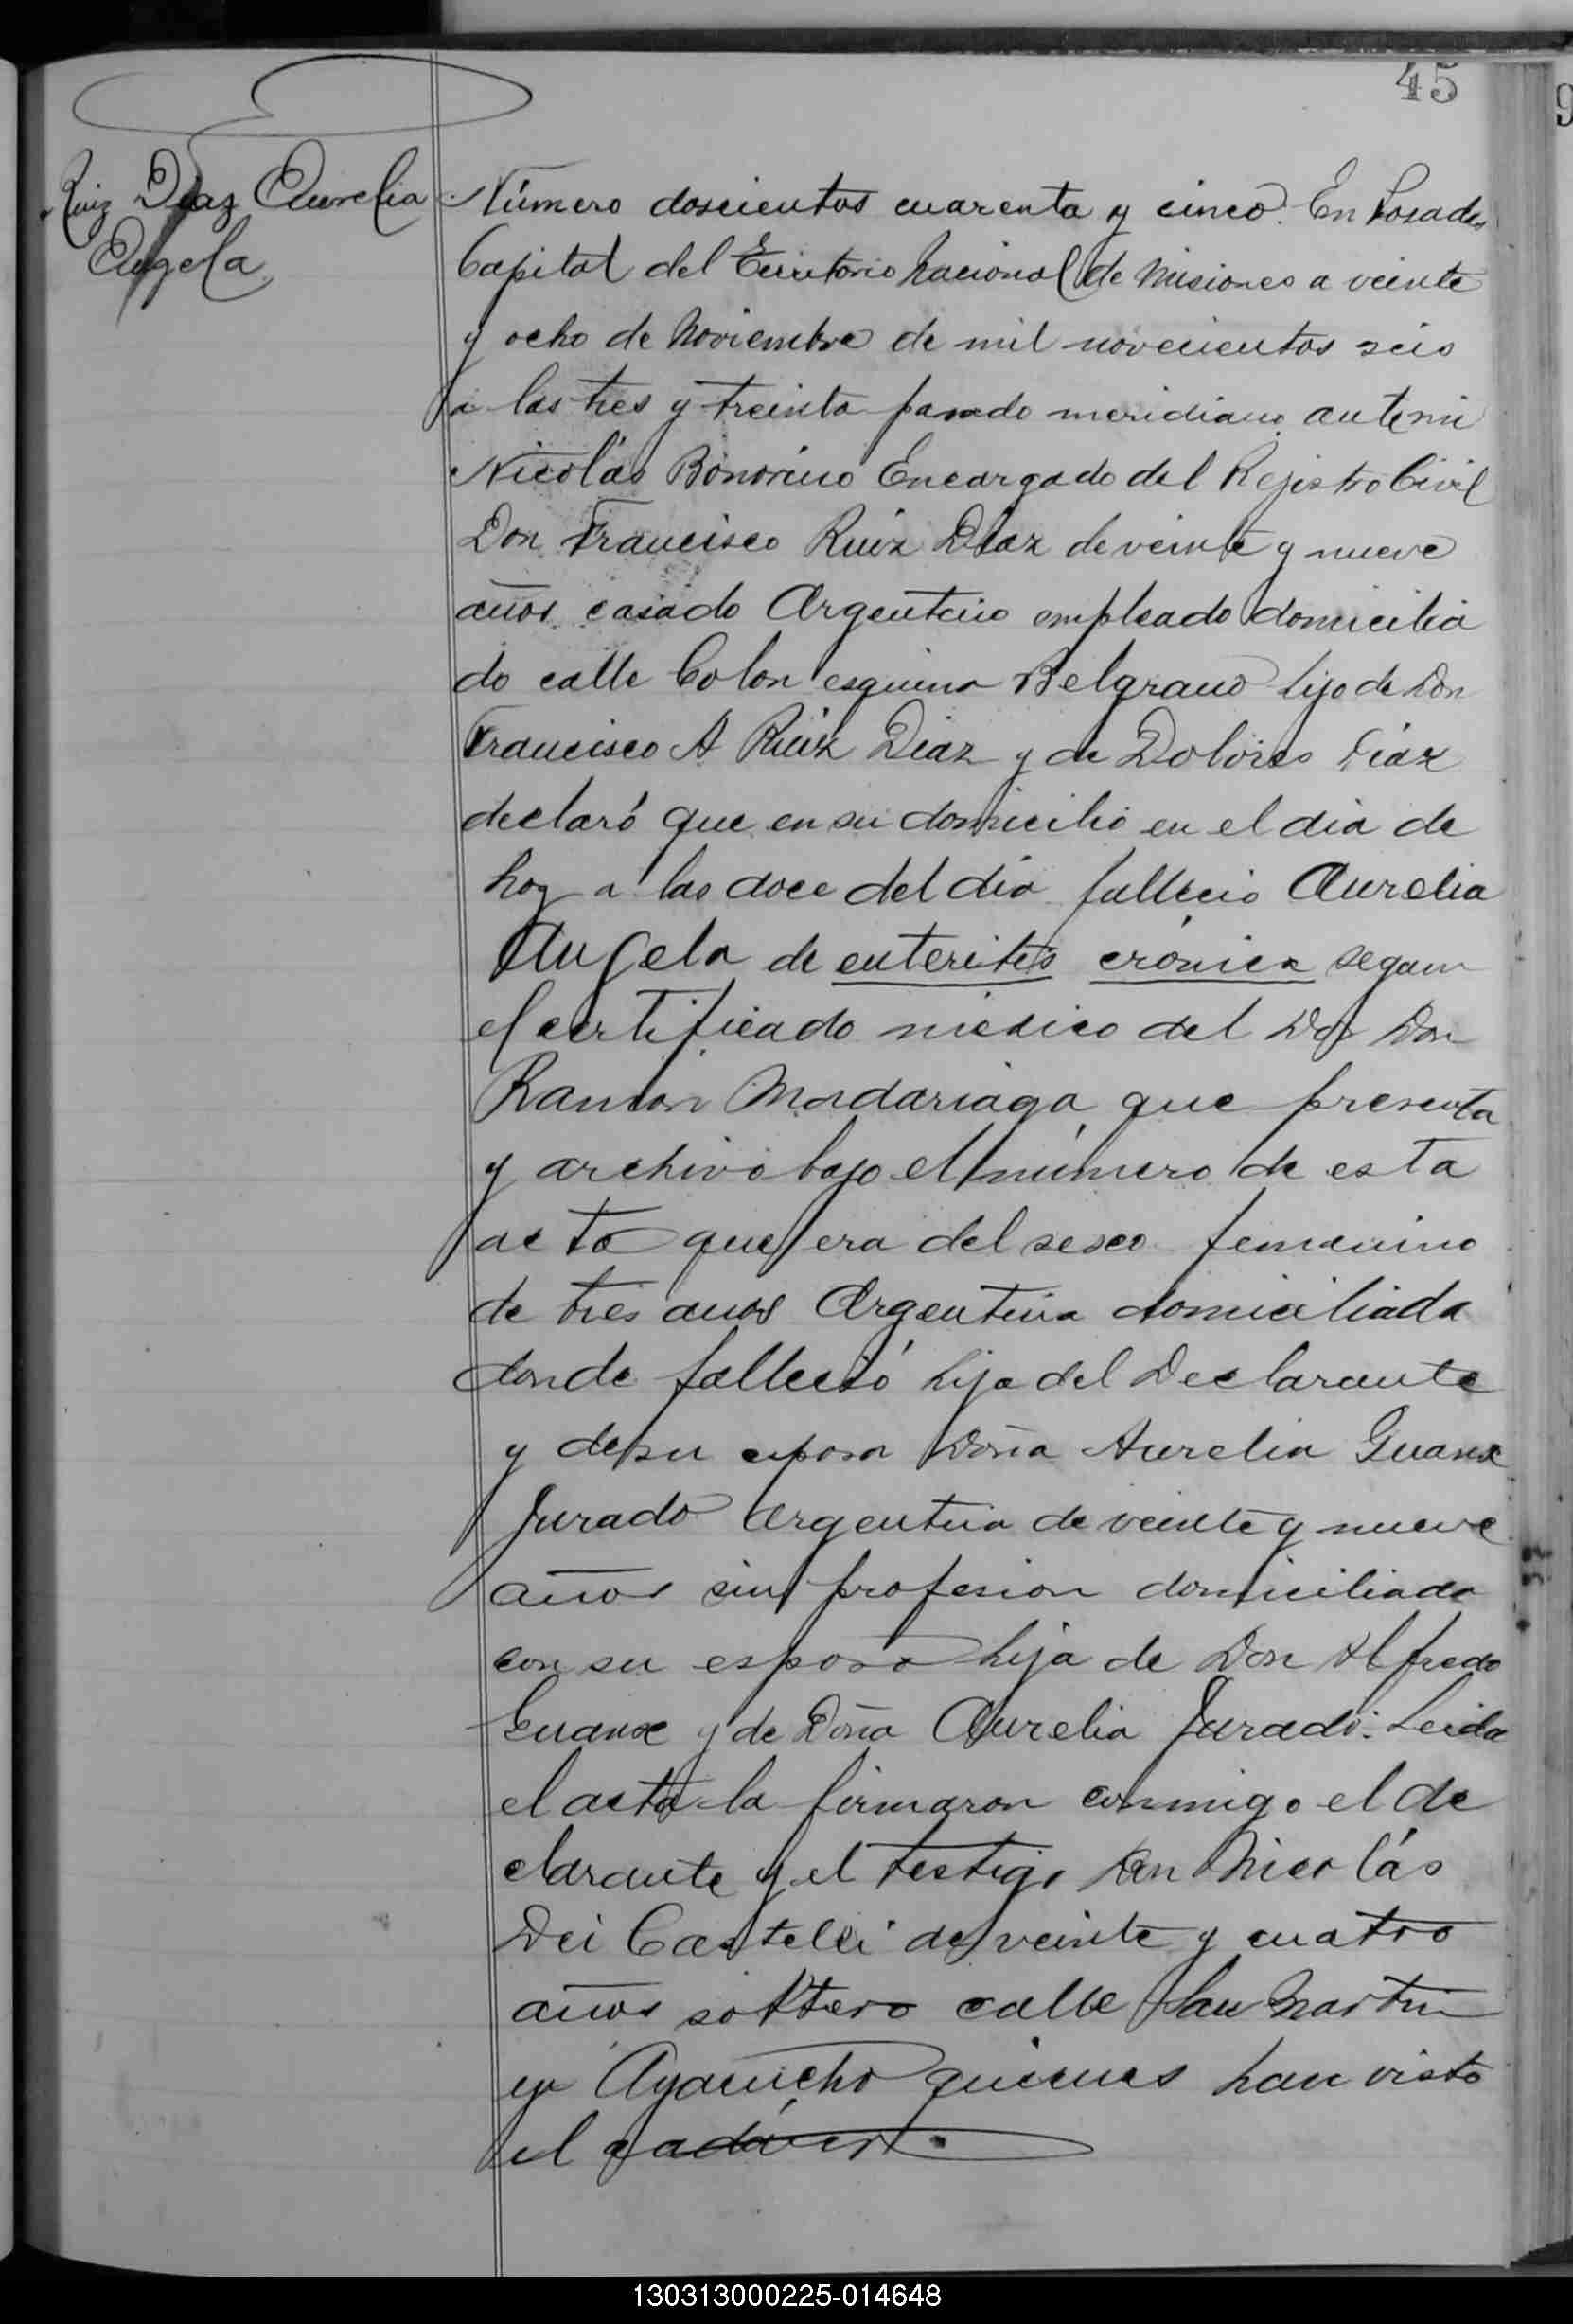 45
Ruiz Diaz Aurelia
Angela
Número doscientos cuarenta y cinco. En Posadas
Capital del Territorio Nacional de Misiones a veinte
y ocho de Noviembre de mil novecientos seis
a las tres y treinta pasado meridiano ante mi
Nicolás Bonorino Encargado del Rejistro Civil
Don Francisco Ruiz Diaz de veinte y nueve
años casado Argentino empleado domicilia
do calle Colon esquina Belgrano hijo de Don
Francisco A Ruiz Diaz y de Dolores Diaz
declaró que en su domicilio en el dia de
hoy a las doce del dia fallecio Aurelia
Angela de enteritis crónica segun
el certificado médico del Dor Don
Ramon Madariaga que presenta
y archivo bajo el número de esta
acta que era del sexo femenino
de tres años Argentina domiciliada
donde falleció hija del Declarante
y de su esposa Doña Aurelia
Jurado Argentina de veinte y nueve
años sin profesion domiciliada
con su esposo hija de Don Alfredo
y de Doña Aurelia Jurado. Leida
el acta la firmaron conmigo el de
clarante y el testigo Don Nicolás
Dei Castelli de veinte y cuatro
años soltero calle San Martin
y Ayacucho quienes han visto
el cadáver.
130313000225-014648